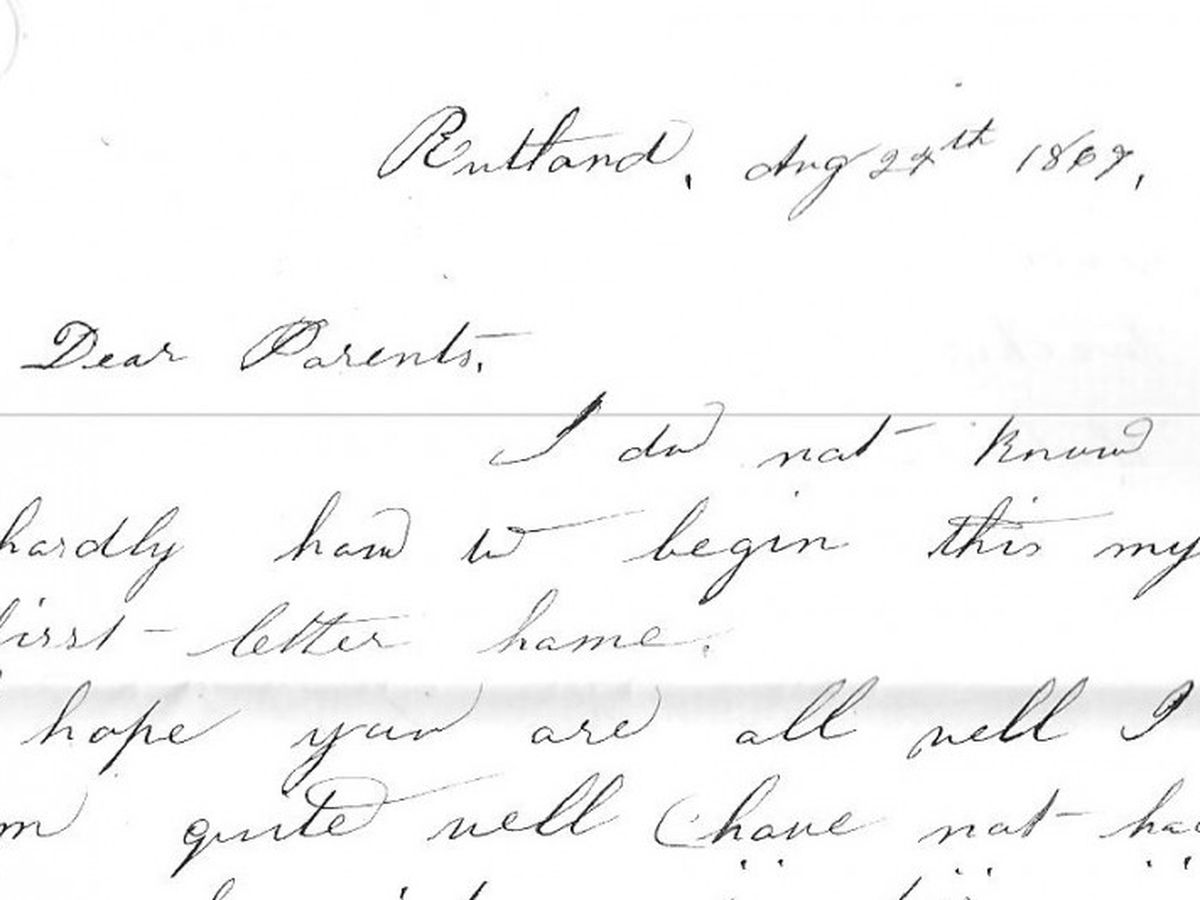 Rutland, Aug 27th 1867,
Dear Parents,
I do not know
hardly how to begin this my
first letter home.
hope you are all well I
quite well (have not